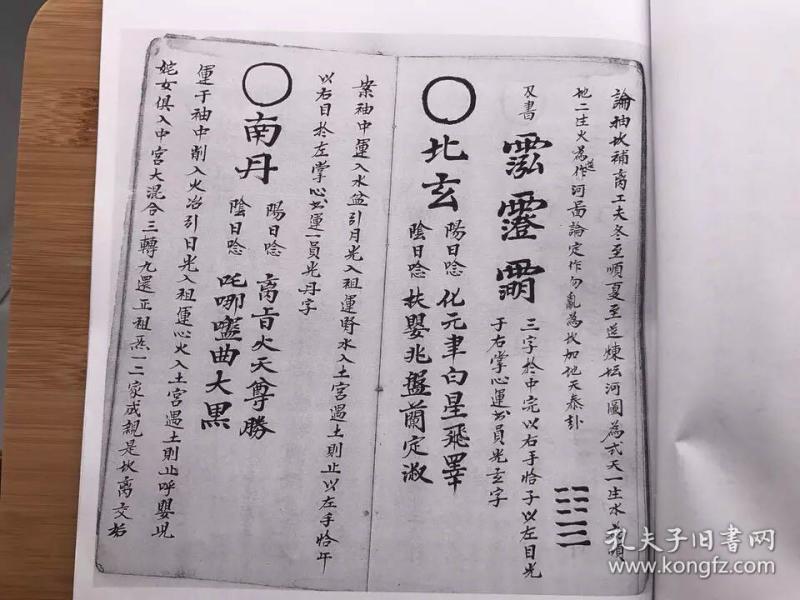 論抽坎補离工夫冬至順夏至逆煉坛河圖為式天一生水為順
地二生火為逆作河圖論定作勿亂為坎加地天泰卦
及書
澐
三字於中完以右手恰子以左目光
于右掌心運出員光玄字
北玄
陽日唸 化元聿白星飛
陰日唸 扶嬰兆盤蘭定淑
岽袖中運入水盆引月光入祖運野水入土宮遇土則止以左手恰午
以右目於左掌心出運一員光丹字
南丹
陽日唸 离旨火天尊勝
陰日唸 吒哪曲大黑
運于袖中削入火冶引日光入祖運心火入土宮遇土則止呼嬰児
姹女俱入中宮大混合三轉九還正祖炁一二家成親是坎离交姤
孔夫子旧书网
www.kongfz.com